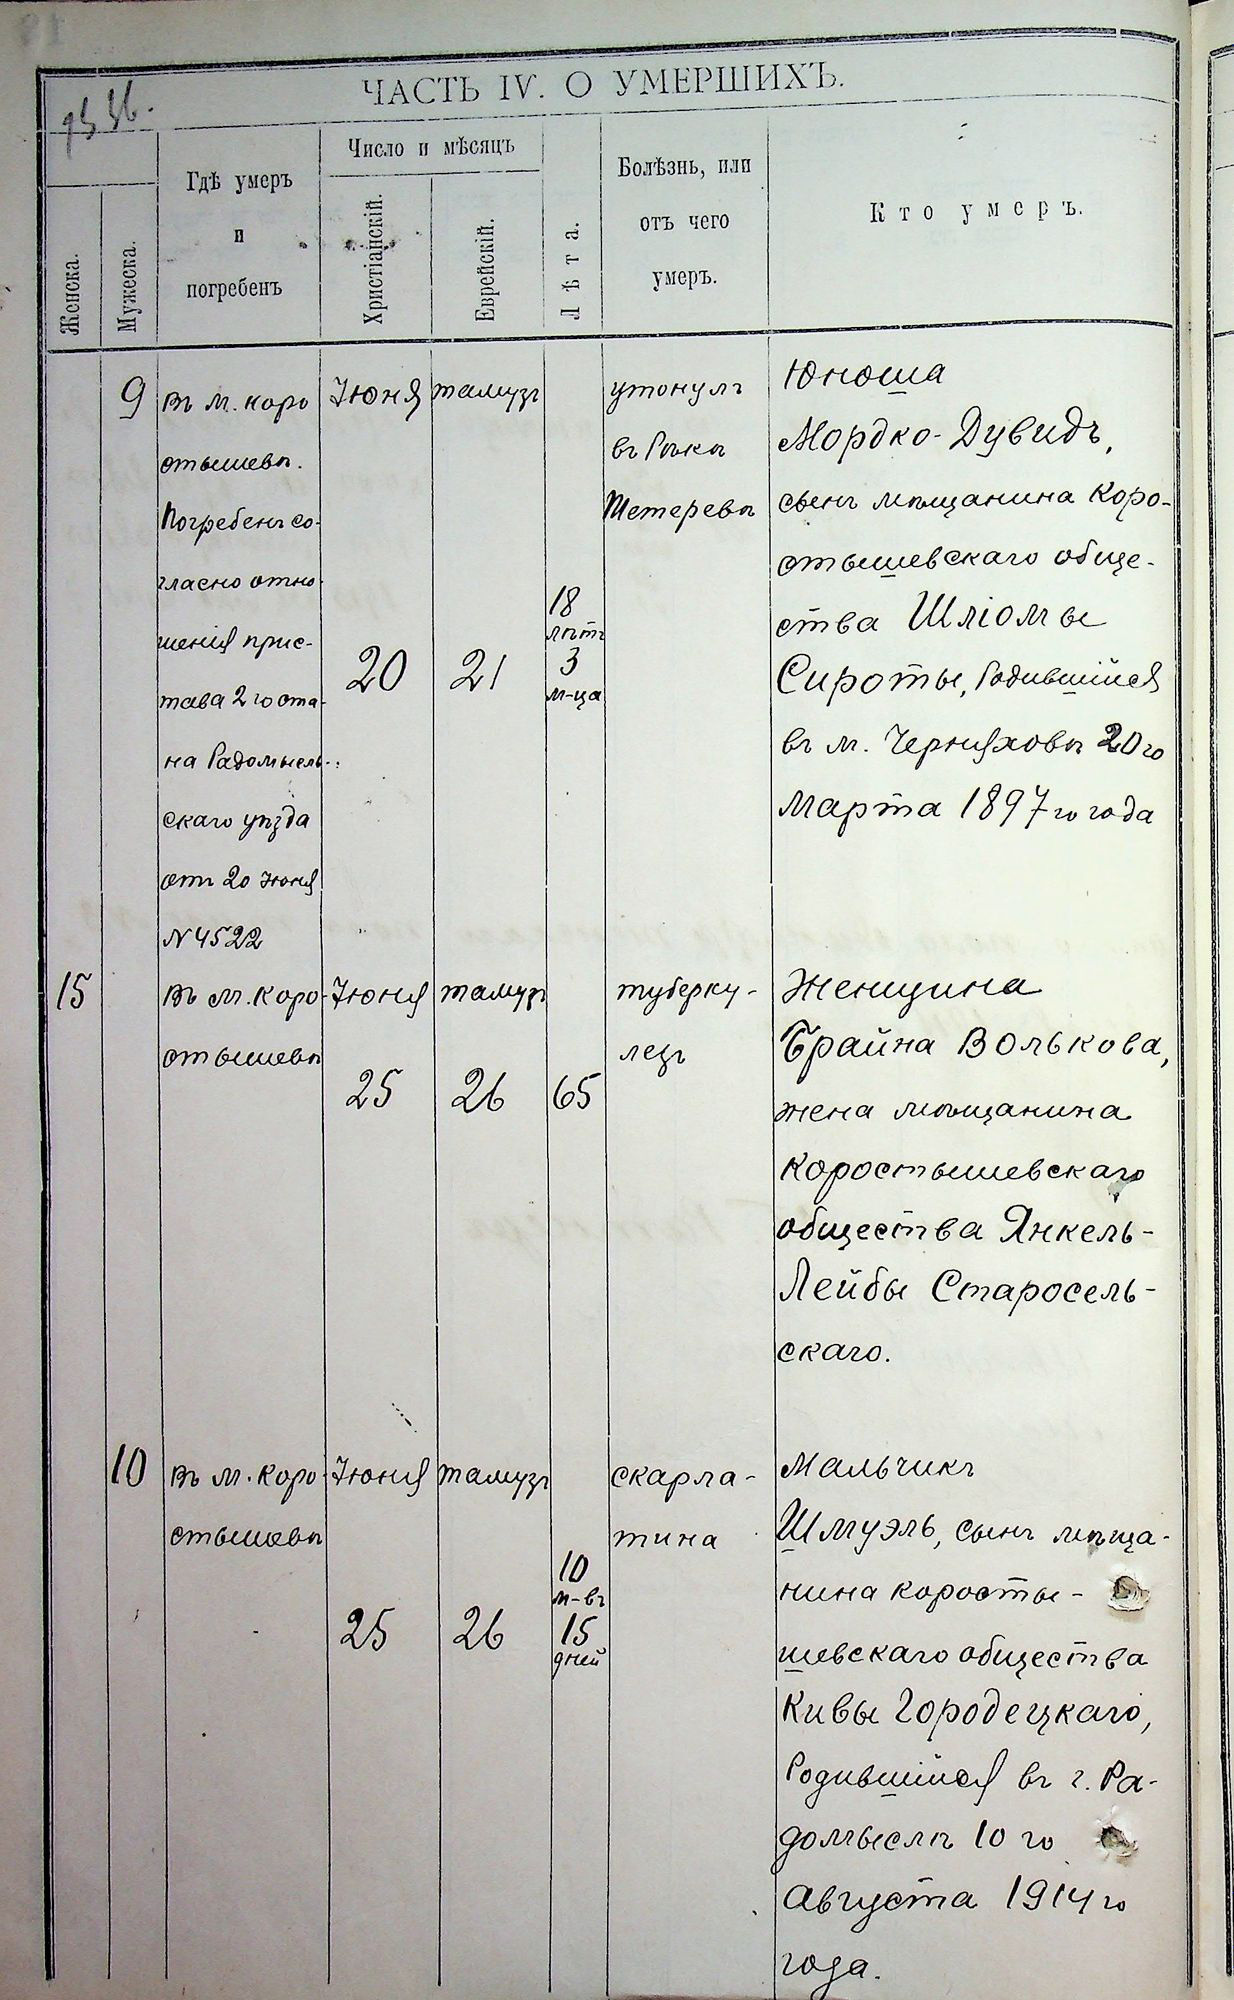 ЧАСТЬ IV. О УМЕРШИХЪ.
Женска.
Мужеска.
Гдѣ умеръ
и
погребенъ
Число и мѣсяцъ
Христіанскій.
Еврейскій.
Лѣта.
Болѣзнь, или
отъ чего
умеръ.
Кто умеръ.
9
въ м. Коро
стышевѣ.
Погребенъ со-
гласно отно-
шенія прис-
тава 2го ста-
на Радомысль-
скаго уѣзда
отъ 20 Июня
N 4522
Июня
20
тамузъ
21
18
лѣтъ
3
м-ца
утонулъ
въ Рѣкѣ
Тетеревѣ
Юноша
Мордко-Дувидъ,
сынъ мѣщанина Коро-
стышевскаго обще-
ства Шліомы
Сироты, Родившійся
въ м. Черняховѣ 20го
Марта 1897го года
15
въ м. Коро-
стышевѣ
Июня
25
тамузъ
26
65
туберку-
лезъ
Женщина
Брайна Волькова,
жена мѣщанина
Коростышевскаго
общества Янкель-
Лейбы Старосель-
скаго.
10
въ м. Коро-
стышевѣ
Июня
25
тамузъ
26
10
м-въ
15
дней
скарла-
тина
Мальчикъ
Шмуэль, сынъ мѣща-
нина Коросты-
шевскаго общества
Кивы Городецкаго,
Родившійся въ г. Ра-
домыслѣ 10го
Августа 1914го
года.